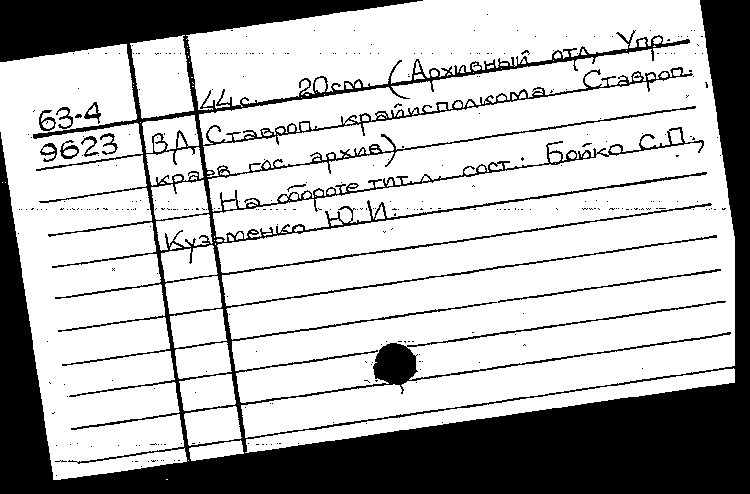 63-4
9623
44 с. 20 см. (Архивный отд. Упр.
ВД Ставроп. крайисполкома. Ставроп.
краев гос. архив)
На обороте тит. л. сост.: Бойко С.П.,
Кузьменко Ю.И.